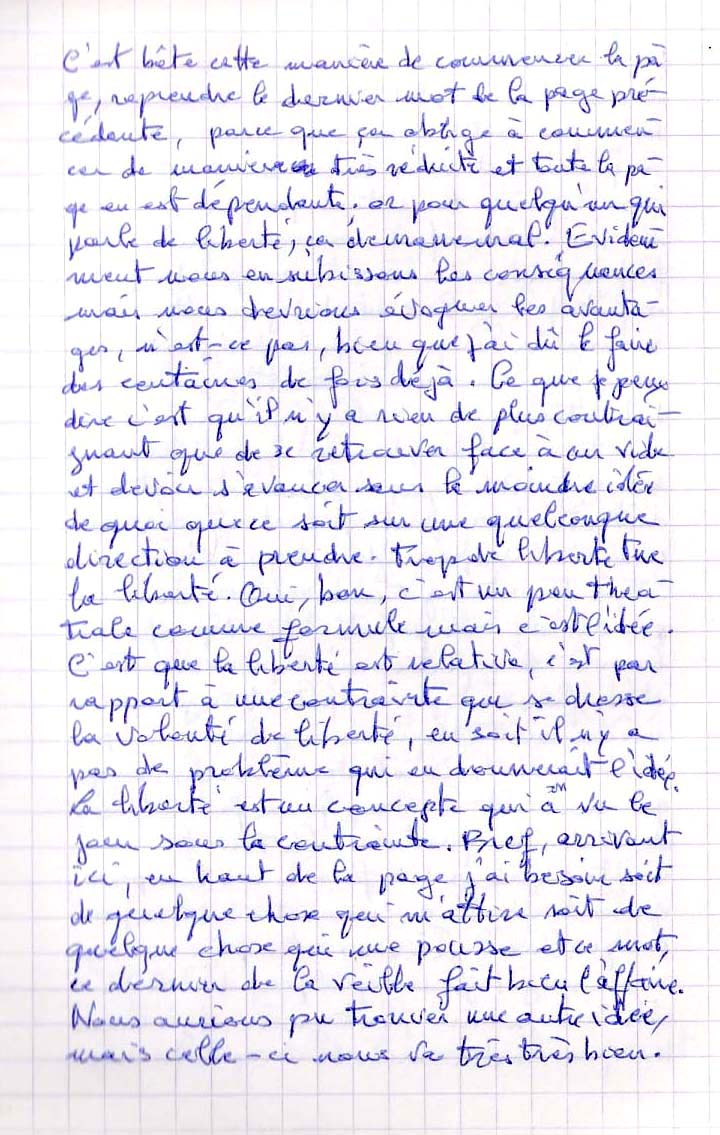 C'est bête cette manière de commencer la pa
ge, reprendre le dernier mot de la page pré-
cédente, parce que ça oblige à commen
cer de manière très réduite et toute la pa-
ge en est dépendante. or pour quelqu'un qui
parle de liberté, ça démarre mal. Evidem
ment nous en subissons les conséquences
mais nous devrions évoquer les avanta-
ges, n'est-ce pas, bien que j'ai dû le faire
des centaines de fois déjà. Ce que je peux
dire c'est qu'il n'y a rien de plus contrai-
gnant que de se retrouver face à un vide
et devoir s'avancer sans la moindre idée
de quoi que ce soit sur une quelconque
direction à prendre. Trop de liberté tue
la liberté. Oui, bon, c'est un peu théâ-
trale comme formule mais c'est l'idée.
C'est que la liberté est relative, c'est par
rapport à une contrainte que se dresse
la volonté de liberté, en soit il n'y a
pas de problème qui en donnerait l'idée.
La liberté est un concepte qui à vu le
jour sous la contrainte. Bref, arrivant
ici, en haut de la page j'ai besoin soit
de quelque chose qui m'attire soit de
quelque chose qui me pousse et ce mot,
ce dernier de la veille fait bien l'affaire.
Nous aurions pu trouver une autre idée,
mais celle-ci nous va très très bien.